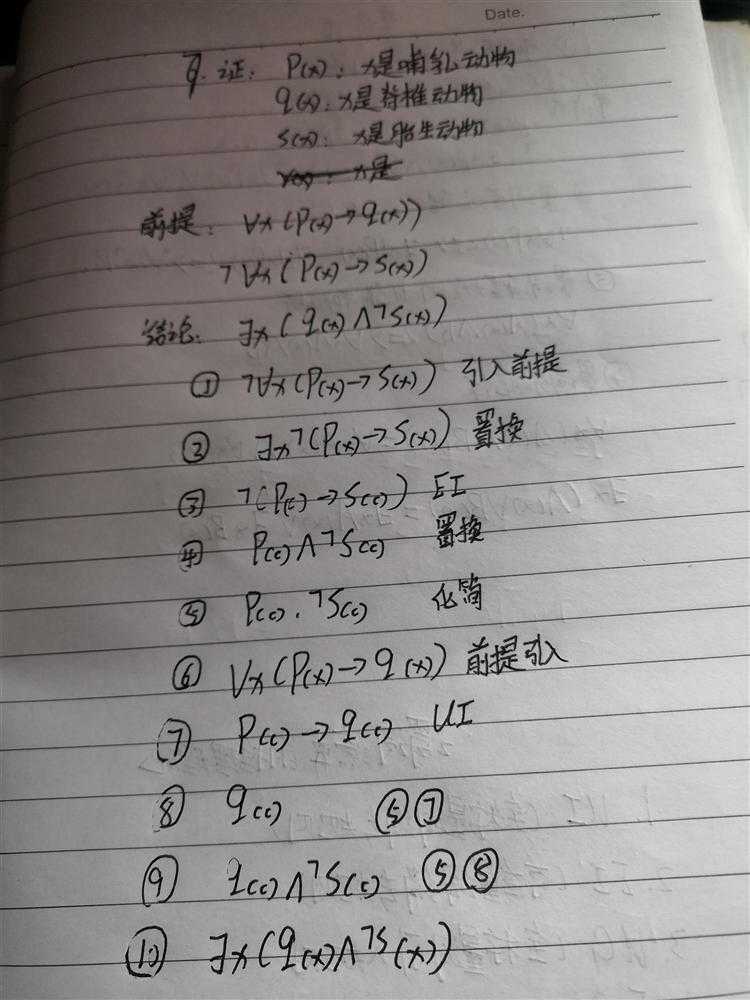 Date.
9. 证: P(x): x是哺乳动物
q(x): x是脊椎动物
S(x): x是胎生动物
前提: ∀x(P(x)→q(x))
¬∀x(P(x)→S(x))
结论: ∃x(q(x)∧¬S(x))
① ¬∀x(P(x)→S(x)) 引入前提
② ∃x¬(P(x)→S(x)) 置换
③ ¬(P(c)→S(c)) EI
④ P(c)∧¬S(c) 置换
⑤ P(c).¬S(c) 化简
⑥ ∀x(P(x)→q(x)) 前提引入
⑦ P(c)→q(c) UI
⑧ q(c) ⑤⑦
⑨ q(c)∧¬S(c) ⑤⑧
⑩ ∃x(q(x)∧¬S(x))